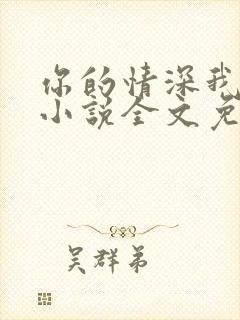 你的情深我
小说全文免
吴群弟